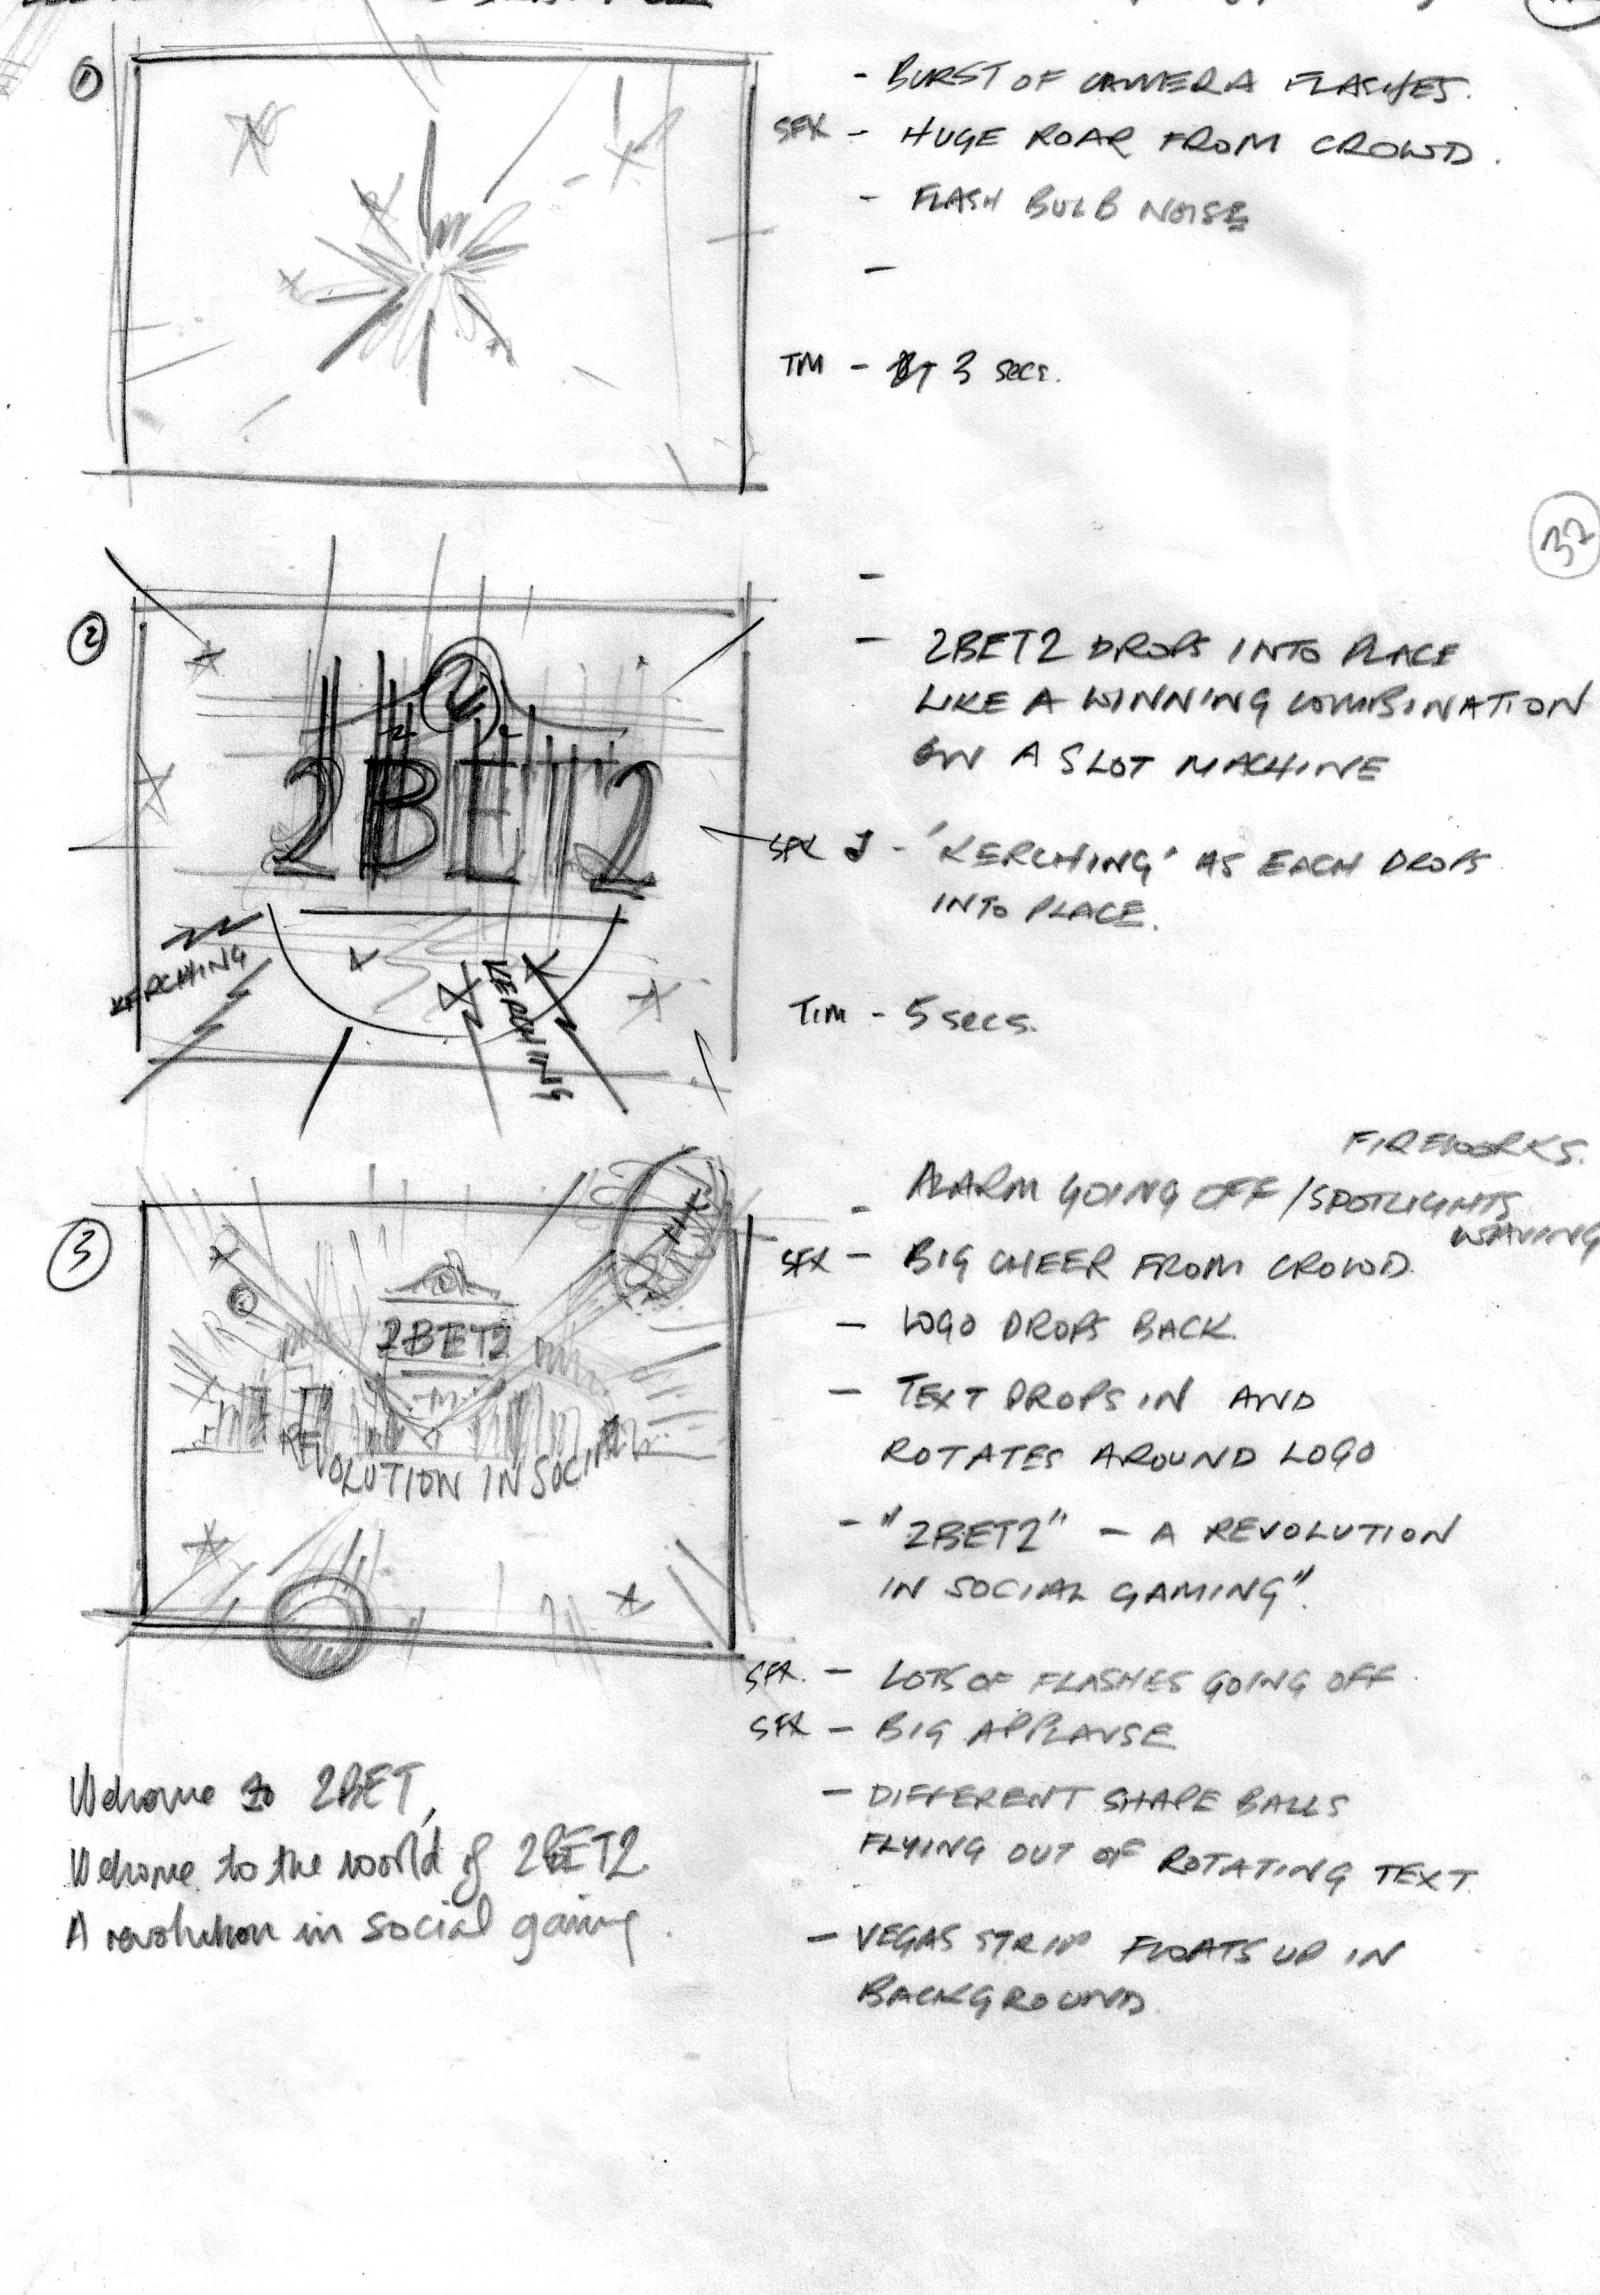 1
- BURST OF CAMERA FLASHES.
SFX - HUGE ROAR FROM CROWD.
- FLASH BULB NOISE
-
TM - 3 secs.
32
2
-
- 2BET2 DROPS INTO PLACE
LIKE A WINNING COMBINATION
ON A SLOT MACHINE
2BET2
SFX - 'KERCHING' AS EACH DROPS
INTO PLACE.
KERCHING
KERCHING
TIM - 5 secs.
3
FIREWORKS.
- ALARM GOING OFF / SPOTLIGHTS
WAVING
SFX - BIG CHEER FROM CROWD.
- LOGO DROPS BACK.
2BET2
- TEXT DROPS IN AND
ROTATES AROUND LOGO
REVOLUTION IN SOCIAL
- "2BET2" - A REVOLUTION
IN SOCIAL GAMING".
SFX. - LOTS OF FLASHES GOING OFF.
SFX - BIG APPLAUSE
- DIFFERENT SHAPE BALLS
FLYING OUT OF ROTATING TEXT.
- VEGAS STRIP FLOATS UP IN
BACKGROUND.
Welcome to 2BET,
Welcome to the world of 2BET2.
A revolution in social gaming.